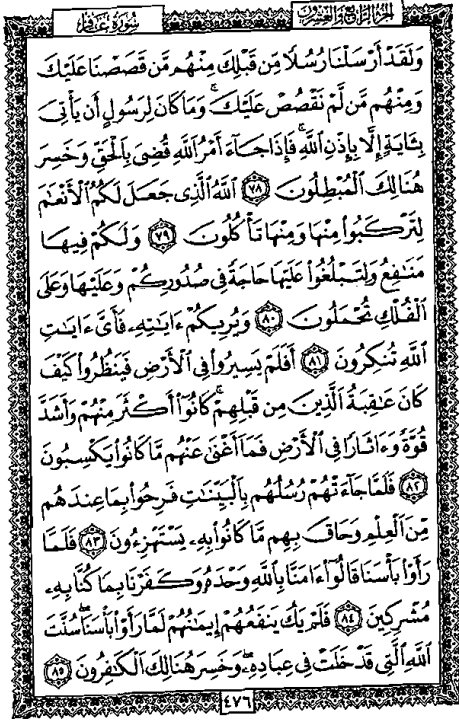 الجزء الرابع والعشرون سورة غافر
وَلَقَدْ أَرْسَلْنَا رُسُلًا مِّن قَبْلِكَ مِنْهُم مَّن قَصَصْنَا عَلَيْكَ
وَمِنْهُم مَّن لَّمْ نَقْصُصْ عَلَيْكَ ۗ وَمَا كَانَ لِرَسُولٍ أَن يَأْتِىَ
بِـَٔايَةٍ إِلَّا بِإِذْنِ ٱللَّهِ ۚ فَإِذَا جَآءَ أَمْرُ ٱللَّهِ قُضِىَ بِٱلْحَقِّ وَخَسِرَ
هُنَالِكَ ٱلْمُبْطِلُونَ ٧٨ ٱللَّهُ ٱلَّذِى جَعَلَ لَكُمُ ٱلْأَنْعَٰمَ
لِتَرْكَبُوا۟ مِنْهَا وَمِنْهَا تَأْكُلُونَ ٧٩ وَلَكُمْ فِيهَا
مَنَٰفِعُ وَلِتَبْلُغُوا۟ عَلَيْهَا حَاجَةً فِى صُدُورِكُمْ وَعَلَيْهَا وَعَلَى
ٱلْفُلْكِ تُحْمَلُونَ ٨٠ وَيُرِيكُمْ ءَايَٰتِهِۦ فَأَىَّ ءَايَٰتِ
ٱللَّهِ تُنكِرُونَ ٨١ أَفَلَمْ يَسِيرُوا۟ فِى ٱلْأَرْضِ فَيَنظُرُوا۟ كَيْفَ
كَانَ عَٰقِبَةُ ٱلَّذِينَ مِن قَبْلِهِمْ ۚ كَانُوٓا۟ أَكْثَرَ مِنْهُمْ وَأَشَدَّ
قُوَّةً وَءَاثَارًا فِى ٱلْأَرْضِ فَمَآ أَغْنَىٰ عَنْهُم مَّا كَانُوا۟ يَكْسِبُونَ
٨٢ فَلَمَّا جَآءَتْهُمْ رُسُلُهُم بِٱلْبَيِّنَٰتِ فَرِحُوا۟ بِمَا عِندَهُم
مِّنَ ٱلْعِلْمِ وَحَاقَ بِهِم مَّا كَانُوا۟ بِهِۦ يَسْتَهْزِءُونَ ٨٣ فَلَمَّا
رَأَوْا۟ بَأْسَنَا قَالُوٓا۟ ءَامَنَّا بِٱللَّهِ وَحْدَهُۥ وَكَفَرْنَا بِمَا كُنَّا بِهِۦ
مُشْرِكِينَ ٨٤ فَلَمْ يَكُ يَنفَعُهُمْ إِيمَٰنُهُمْ لَمَّا رَأَوْا۟ بَأْسَنَا ۖ سُنَّتَ
ٱللَّهِ ٱلَّتِى قَدْ خَلَتْ فِى عِبَادِهِۦ ۖ وَخَسِرَ هُنَالِكَ ٱلْكَٰفِرُونَ ٨٥
٤٧٦